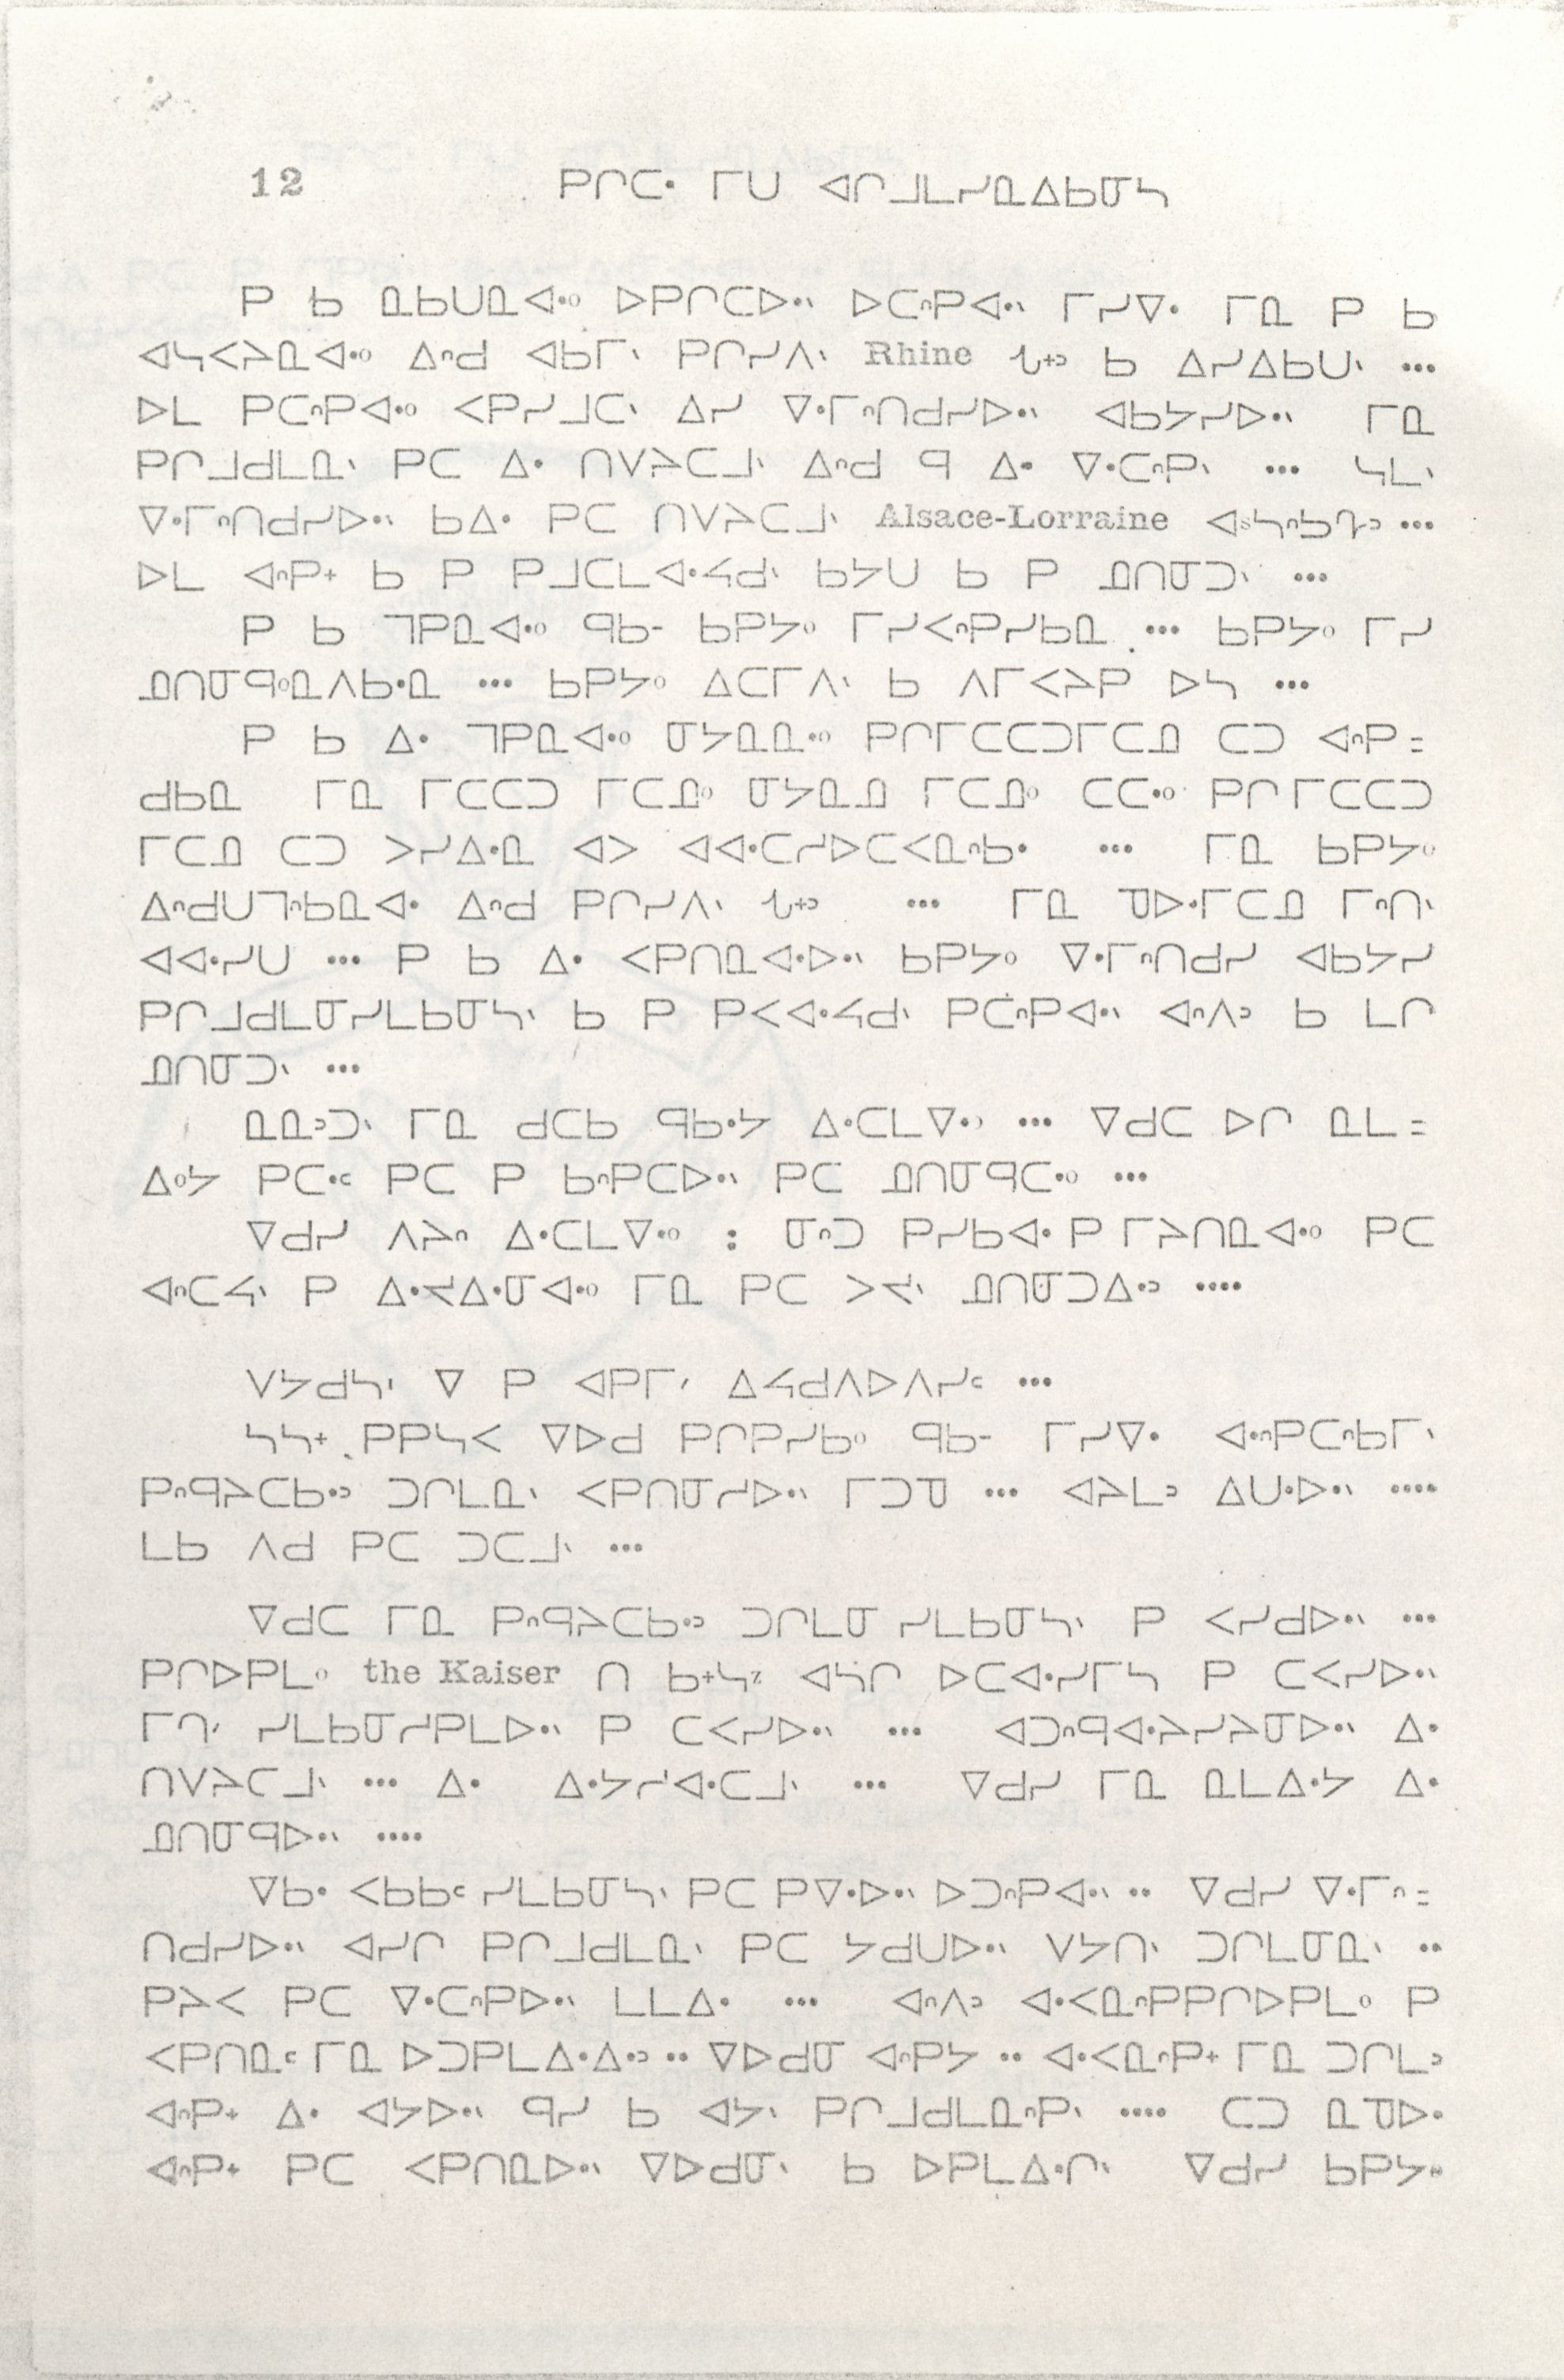 12 ᑭᒋᑕᐧ ᒥᑌ ᐊᒋᒧᒪᓯᓇᐃᑲᓂᓴ
ᑭ ᑲ ᓇᑲᑌᓇᐊᐧᐤ ᐅᑭᒋᑕᐅᐧᐠ ᐅᑕᐢᑭᐊᐧᐠ ᒥᓯᐁᐧ ᒥᓇ ᑭ ᑲ
ᐊᓴᐸᔨᓇᐊᐧᐤ ᐃᐢᑯ ᐊᑲᒥᐠ ᑭᒋᓯᐱᐠ Rhine ᕒᐩᐣ ᑲ ᐃᓯᐃᑲᑌᐠ ...
ᐅᒪ ᑭᑕᐢᑭᐊᐧᐤ ᐸᑭᓯᒧᑕᐠ ᐃᓯ ᐁᐧᒥᐢᑎᑯᓯᐅᐧᐠ ᐊᑲᔭᓯᐅᐧᐠ ᒥᓇ
ᑭᒋᒧᑯᒪᓇᐠ ᑭᑕ ᐃᐧ ᑎᐯᔨᑕᒧᐠ ᐃᐢᑯ ᑫ ᐃᐧ ᐁᐧᑕᐢᑭᐠ ... ᓴᒪᐠ
ᐁᐧᒥᐢᑎᑯᓯᐅᐧᐠ ᑲᐃᐧ ᑭᑕ ᑎᐯᔨᑕᒧᐠ Alsace-Lorraine
ᐅᒪ ᐊᐢᑭᐩ ᑲ ᑭ ᑭᒧᑕᒪᐊᐧᔭᑯᐠ ᑲᔭᑌ ᑲ ᑭ ᓄᑎᓂᑐᐠ ...
ᑭ ᑲ ᒣᑭᓇᐊᐧᐤ ᑫᑲ- ᑲᑭᔭᐤ ᒥᓯᐸᐢᑭᓯᑲᓇ ... ᑲᑭᔭᐤ ᒥᓯ
ᓄᑎᓂᑫᐤᓇᐱᑲᐧᓇ ... ᑲᑭᔭᐤ ᐃᑕᒥᐱᐠ ᑲ ᐱᒥᐸᔨᑭ ᐅᓴ ...
ᑭ ᑲ ᐃᐧ ᒣᑭᓇᐊᐧᐤ ᓂᔭᓇᓇᐧᐤ ᑭᒋᒥᑕᑕᑐᒥᑕᓄ ᑕᑐ ᐊᐢᑭ=
ᑯᑲᓇ ᒥᓇ ᒥᑕᑕᑐ ᒥᑕᓄᐤ ᓂᔭᓇᓄ ᒥᑕᓄᐤ ᑕᑕᐧᐤ ᑭᒋ ᒥᑕᑕᑐ
ᒥᑕᓄ ᑕᑐ ᐳᓯᐃᐧᓇ ᐊᐳ ᐊᐊᐧᑕᓯᐅᑕᐸᓇᐢᑲᐧ ... ᒥᓇ ᑲᑭᔭᐤ
ᐃᐢᑯᑌᒣᐢᑲᓇᐊᐧ ᐃᐢᑯ ᑭᒋᓯᐱᐠ ᕒᐩᐣ ... ᒥᓇ ᑫᐅᐧᒥᑕᓄ ᒥᐢᑎᐠ
ᐊᐊᐧᓯᑌ ... ᑭ ᑲ ᐃᐧ ᐸᑭᑎᓇᐊᐧᐅᐧᐠ ᑲᑭᔭᐤ ᐁᐧᒥᐢᑎᑯᓯ ᐊᑲᔭᓯ
ᑭᒋᒧᑯᒪᓂᓯᒪᑲᓂᓴᐠ ᑲ ᑭ ᑭᐸᐊᐧᔭᑯᐠ ᑭᑕᐢᑭᐊᐧᐠ ᐊᐢᐱᐣ ᑲ ᒪᒋ
ᓄᑎᓂᑐᐠ ...
ᓇᓇᐣᑐᐠ ᒥᓇ ᑯᑕᑲ ᑫᑲᐧᔭ ᐃᐧᑕᒪᐁᐧᐤ ... ᐁᑯᑕ ᐅᒋ ᓇᒪ=
ᐃᐤᔭ ᑭᑕᐧᑦ ᑭᑕ ᑭ ᑲᐢᑭᑕᐅᐧᐠ ᑭᑕ ᓄᑎᓂᑫᑕᐧᐤ ...
ᐁᑯᓯ ᐱᔨᐢ ᐃᐧᑕᒪᐁᐧᐤ : ᓂᐢᑐ ᑭᓯᑲᐊᐧ ᑭ ᒥᔨᑎᓇᐊᐧᐤ ᑭᑕ
ᐊᐢᑕᔭᐠ ᑭ ᐃᐧᔪᐃᐧᓂᐊᐧᐤ ᒥᓇ ᑭᑕ ᐳᔪᐠ ᓄᑎᓂᑐᐃᐧᐣ ....
ᐯᔭᑯᓴᐠ ᐁ ᑭ ᐊᑭᒥᐟ ᐃᔭᑯᐱᐅᐱᓯᑦ ...
ᓴᓴᐩ ᑭᑭᓴᐸ ᐁᐅᑯ ᑭᒋᑭᓯᑲᐤ ᑫᑲ- ᒥᓯᐁᐧ ᐊᐧᐢᑭᑕᐢᑲᒥᐠ
ᑭᐢᑫᔨᑕᑲᐧᐣ ᑐᒋᒪᓇᐠ ᐸᑭᑎᓂᓯᐅᐧᐠ ᒥᑐᓀ ... ᐊᔨᒪᐣ ᐃᑌᐧᐅᐧᐠ ....
ᒪᑲ ᐱᑯ ᑭᑕ ᑐᑕᒧᐠ ...
ᐁᑯᑕ ᒥᓇ ᑭᐢᑫᔨᑕᑲᐧᐣ ᑐᒋᒪᓂ ᓯᒪᑲᓂᓴᐠ ᑭ ᐸᓯᑯᐅᐧᐠ ...
ᑭᒋᐅᑭᒪᐤ the Kaiser ᑎ ᑲᐩᓴᙆ ᐊᓴᒋ ᐅᑕᐊᐧᓯᒥᓴ ᑭ ᑕᐸᓯᐅᐧᐠ
ᒥᒋᐟ ᓯᒪᑲᓂᓯᑭᒪᐅᐧᐠ ᑭ ᑕᐸᓯᐅᐧᐠ ... ᐊᑐᐢᑫᐊᐧᔨᓯᔨᓂᐅᐧᐠ ᐃᐧ
ᑎᐯᔨᑕᒧᐠ ... ᐃᐧ ᐃᐧᔭᓯᐊᐧᑕᒧᐠ ... ᐁᑯᓯ ᒥᓇ ᓇᒪᐃᐧᔭ ᐃᐧ
ᓄᑎᓂᑫᐅᐧᐠ ....
ᐁᑲᐧ ᐸᑲᑲᑦ ᓯᒪᑲᓂᓴᐠ ᑭᑕ ᑭᐁᐧᐅᐧᐠ ᐅᑐᐢᑭᐊᐧᐠ .. ᐁᑯᓯ ᐁᐧᒥᐢ=
ᑎᑯᓯᐅᐧᐠ ᐊᓯᒋ ᑭᒋᒧᑯᒪᓇᐠ ᑭᑕ ᔭᑯᑌᐅᐧᐠ ᐯᔭᑎᐠ ᑐᒋᒪᓂᓇᐠ ..
ᑭᔨᐸ ᑭᑕ ᐁᐧᑕᐢᑭᐅᐧᐠ ᒪᒪᐃᐧ ... ᐊᐢᐱᐣ ᐊᐧᐸᓇᐢᑭᑭᒋᐅᑭᒪᐤ ᑭ
ᐸᑭᑎᓇᑦ ᒥᓇ ᐅᑐᑭᒪᐃᐧᐃᐧᐣ .. ᐁᐅᑯᓂ ᐊᐢᑭᔭ .. ᐊᐧᐸᓇᐢᑭᐩ ᒥᓇ ᑐᒋᒪᐣ
ᐊᐢᑭᐩ ᐃᐧ ᐊᔭᐅᐧᐠ ᑫᓯ ᑲ ᐊᔭᐠ ᑭᒋᒧᑯᒪᓇᐢᑭᐠ .... ᑕᑐ ᓇᓀᐅᐧ
ᐊᐢᑭᐩ ᑭᑕ ᐸᑭᑎᓇᐅᐧᐠ ᐁᐅᑯᓂᐠ ᑲ ᐅᑭᒪᐃᐧᒋᐠ ᐁᑯᓯ ᑲᑭᔭᐤ